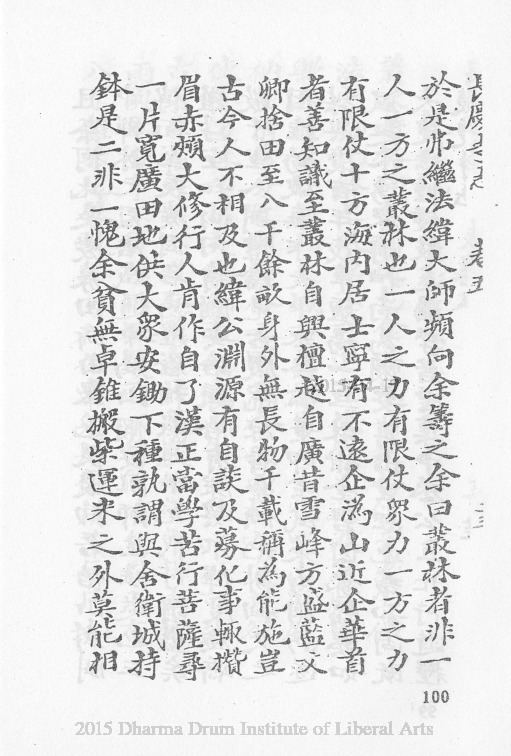 長慶寺志 卷五
於是帀繼法緯大師頻向余籌之余曰叢林者非一
人一方之叢林也一人之力有限仗眾力一方之力
有限仗十方海内居士寧有不遠企溈山近企華首
者善知識至叢林自興檀越自廣昔雪峰方盛藍文
卿捨田至八千餘畝身外無長物千載稱為能施豈
古今人不相及也緯公淵源有自談及募化事輙攢
眉赤頰大修行人肯作自了漢正當學苦行菩薩尋
一片寬廣田地供大眾安鋤下種孰謂與舍衛城持
鉢是二非一愧余貧無卓錐搬柴運米之外莫能相
100
2015 Dharma Drum Institute of Liberal Arts